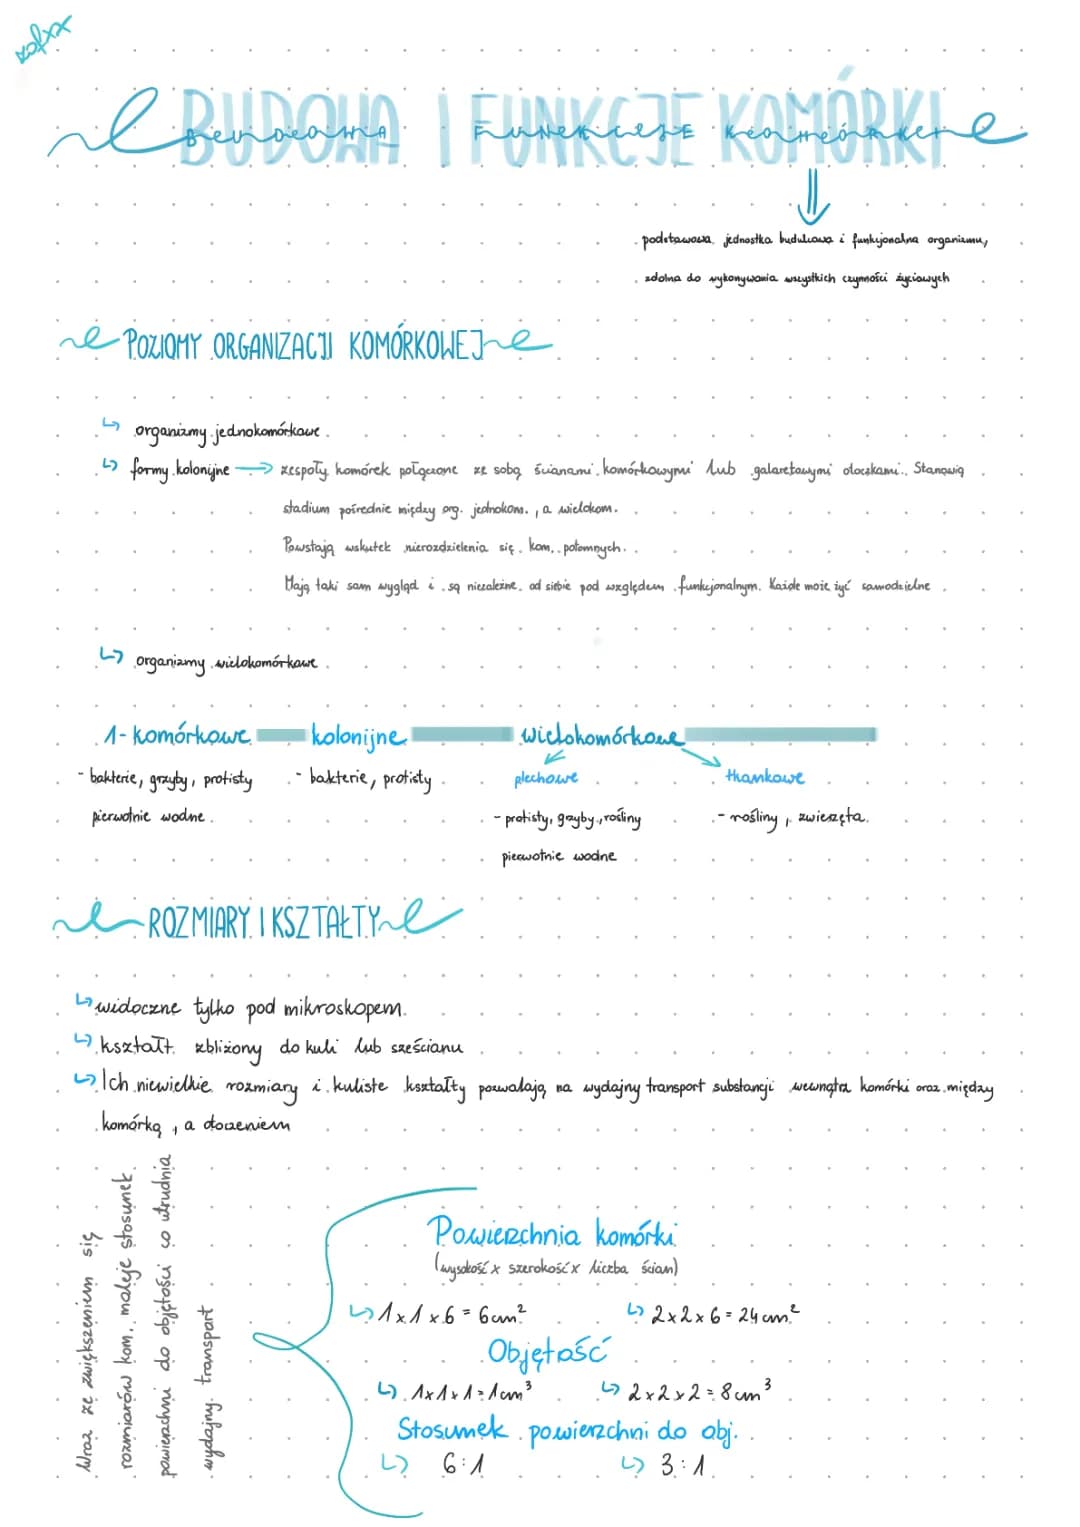 zofxx
BUDOWA I FUNKCJE KOMÓRKI
podstawowa jednostka budulcowa i funkcjonalna organizmu,
zdolna do wykonywania wszystkich czynności życiowych
POZIOMY ORGANIZACJI KOMÓRKOWEJ
organizmy jednokomórkowe
formy kolonijne → zespoły komórek połączone ze sobą ścianami komórkowymi lub galaretowymi otoczkami. Stanowią
stadium pośrednie między org. jednokom., a wielokom.
Powstają wskutek nierozdzielenia się kom. potomnych.
Mają taki sam wygląd i są niezależne od siebie pod względem funkcjonalnym. Każde może żyć samodzielne
organizmy wielokomórkowe
1-komórkowe kolonijne wielokomórkowe
- bakterie, grzyby, protisty - bakterie, protisty plechowe tkankowe
pierwotnie wodne - protisty, grzyby, rośliny - rośliny, zwierzęta
pierwotnie wodne
ROZMIARY I KSZTAŁTY
widoczne tylko pod mikroskopem
kształt zbliżony do kuli lub sześcianu
Ich niewielkie rozmiary i kuliste kształty pozwalają na wydajny transport substancji wewnątrz komórki oraz między
komórką, a otoczeniem
Wraz ze zwiększeniem się
rozmiarów kom. maleje stosunek
powierzchni do objętości co utrudnia
wydajny transport
Powierzchnia komórki
(wysokość x szerokość x liczba ścian)
1x1x6 = 6cm² 2x2x6 = 24cm²
Objętość
1x1x1=1cm³ 2x2x2=8cm³
Stosunek powierzchni do obj.
6:1 3:1